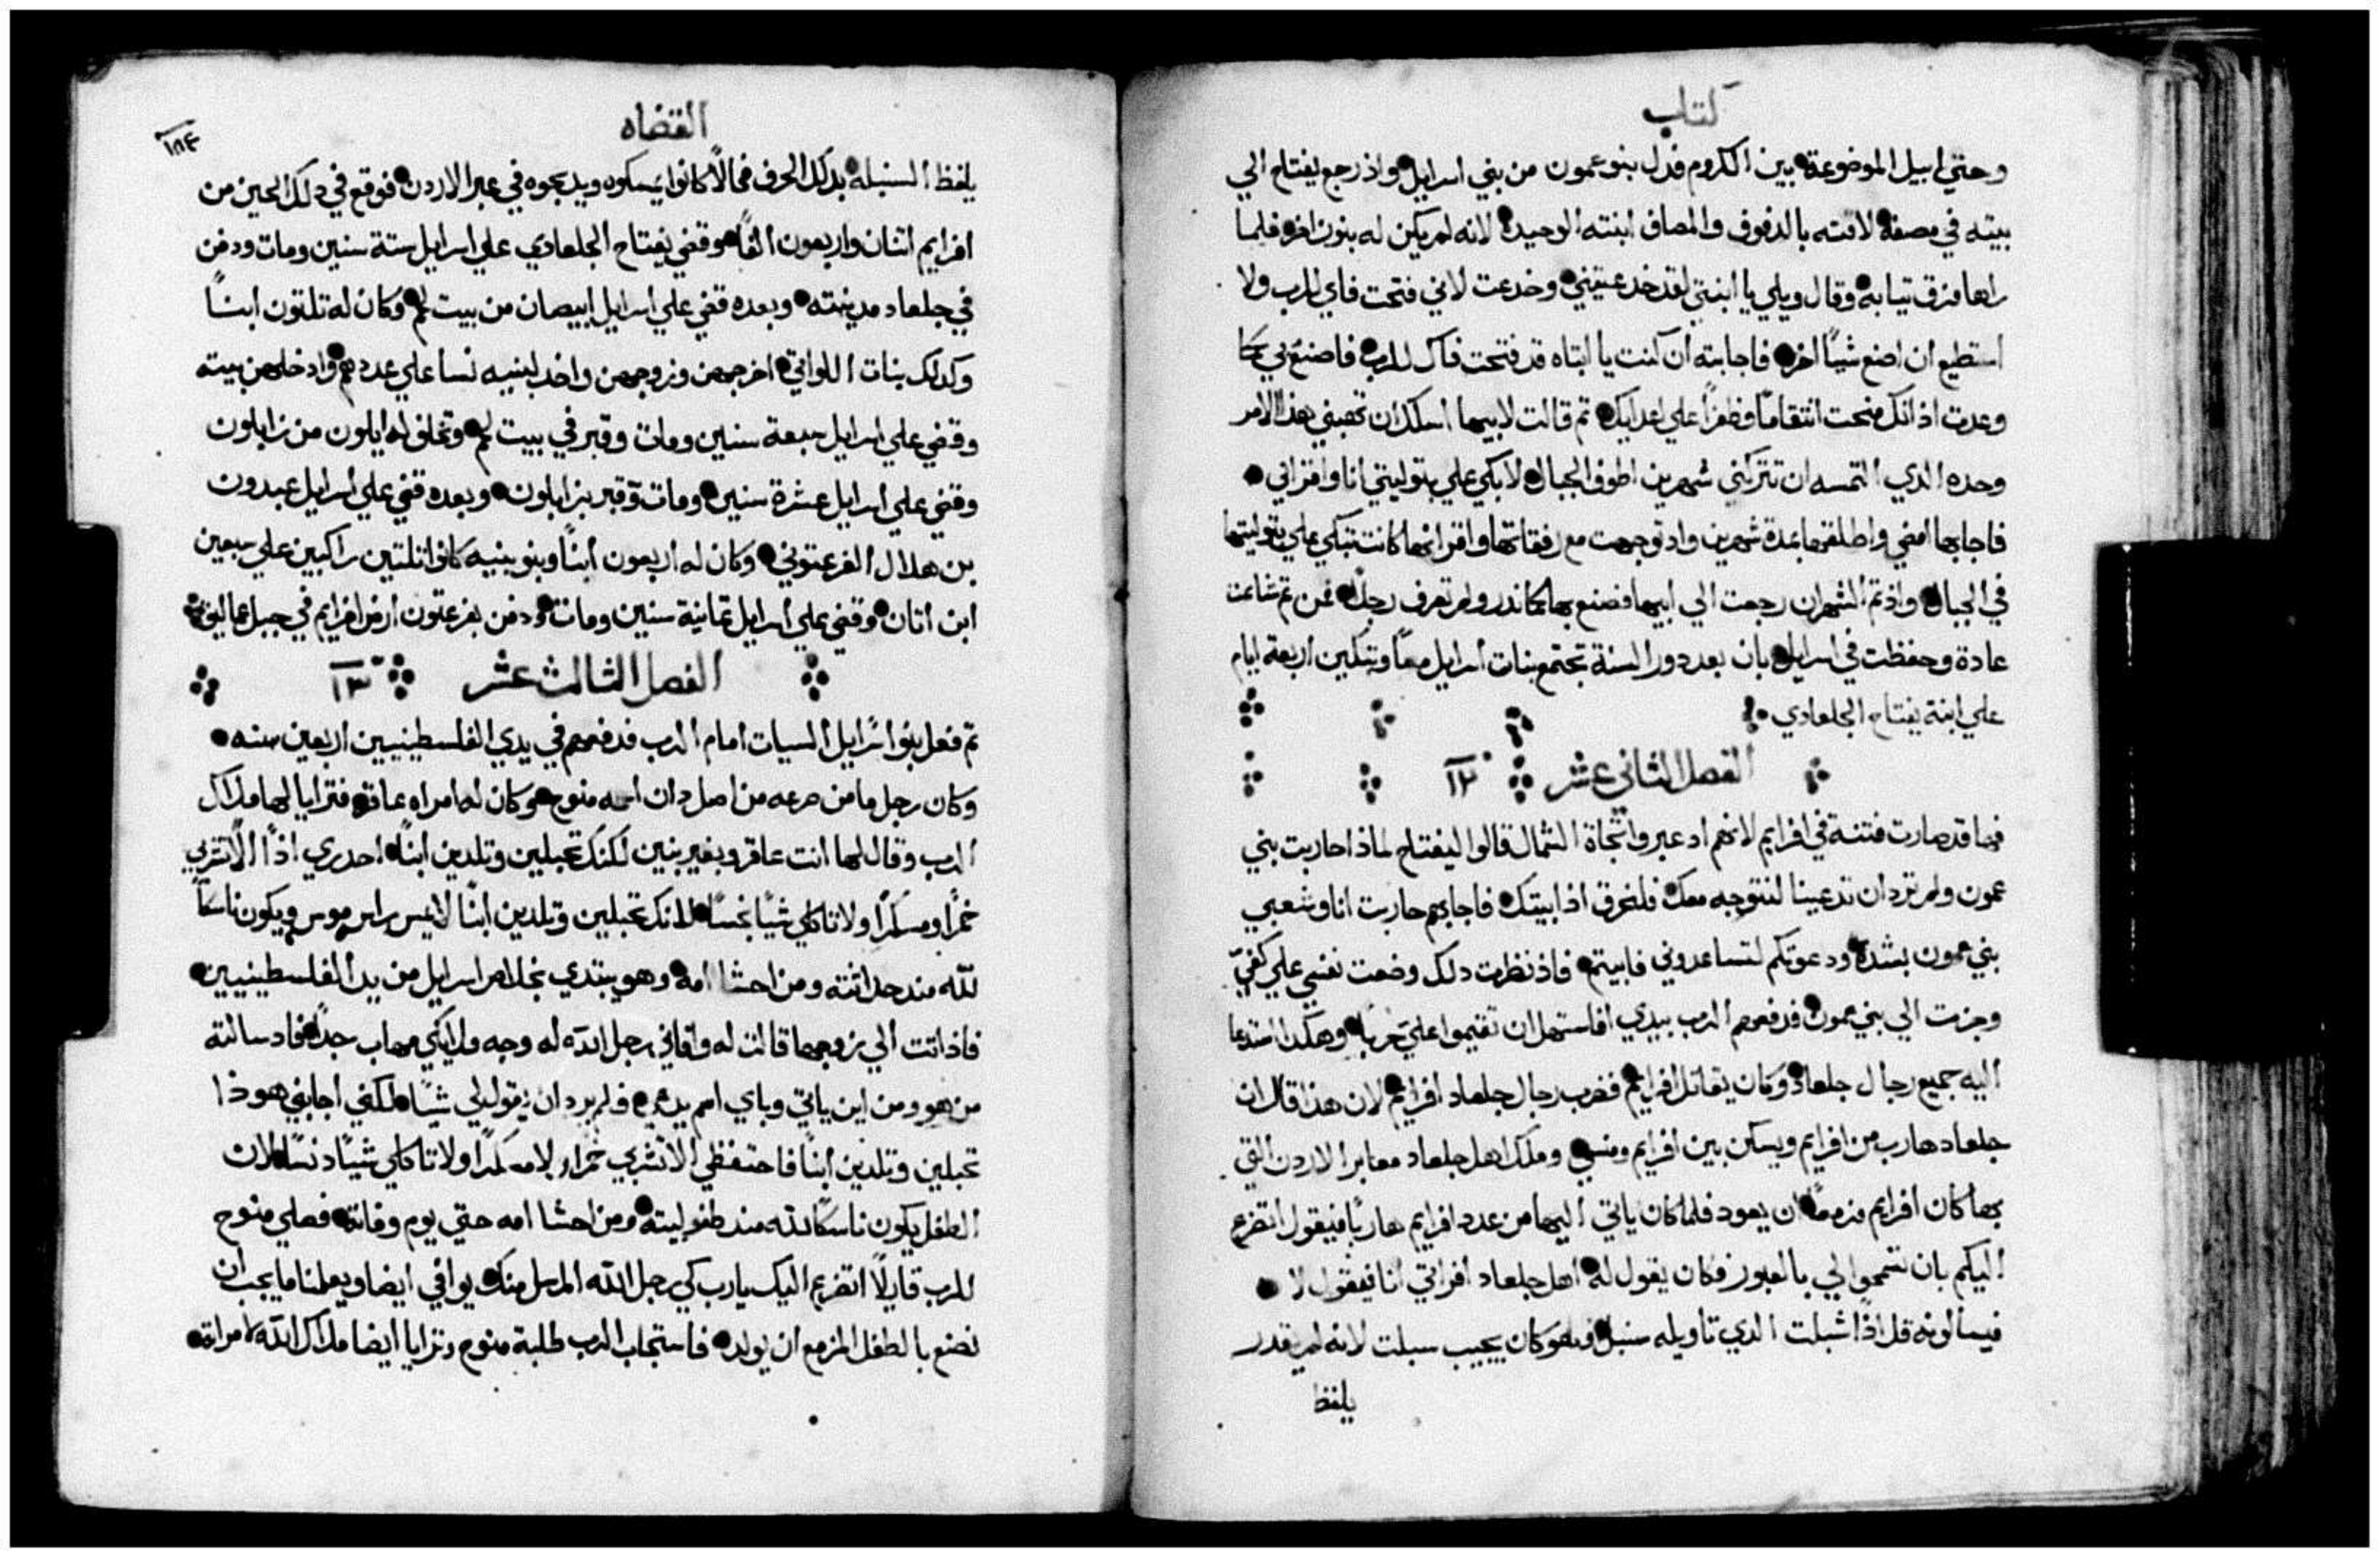 كتاب
وحتي ابيل الموضوعة بين الكروم فدل بنو عمون من بني اسرايل واذ رجع يفتاح الي
بيته في مصفه لاقته بالدفوف والمصاف ابنته الوحيده لانه لم يكن له بنون اخر فلما
راها مزق تيابه وقال ويلي يا ابنتي لقد خدعتيني وخدعت لاني فتحت فاي للرب ولا
استطيع ان اصنع شيًا اخر فاجابته ان كنت يا ابتاه قد فتحت فاك للرب فاصنع بي كما
وعدت اذ انك منحت انتقامًا وظفرًا علي اعدايك تم قالت لابيها اسلك ان تهبني هذا الامر
وحده الدي التمسه ان تتركني شهرين اطوف الجبال لابكي علي بتوليتي انا واقراني
فاجابها امضي واطلقها بمدة شهرين واد توجهت مع رفقاتها واقرانها كانت تبكي علي بتوليتها
في الجبال واذ تم الشهران رجعت الي ابيها فصنع بها كما نذر ولم تعرف رجلًا فمن تم شاعت
عادة وحفظت في اسرايل بان بعد دور السنة تجتمع بنات اسرايل معًا وتبكين اربعة ايام
علي ابنة يفتاح الجلعادي
الفصل الثاني عشر ١٢
فها قد صارت فتنة في افرايم لانهم اد عبروا تجاة الشمال قالوا ليفتاح لماذا حاربت بني
عمون ولم ترد ان تدعينا لنتوجه معك فلنحرق اذا بيتك فاجابهم حاربت انا وشعبي
بني عمون بشده ودعوتكم لتساعدوني فابيتم فاذ نظرت دلك وضعت نفسي علي كفيّ
وجزت الي بني عمون فدفعهم الرب بيدي افاستهل ان تقيموا علي حربًا وهكدا استدعا
اليه جميع رجال جلعاد وكان يقاتل افرايم فضرب رجال جلعاد افرايم لان هذا قال ان
جلعاد هارب من افرايم ويسكن بين افرايم ومنسي وملك اهل جلعاد معابر الاردن التي
بها كان افرايم مزمعًا ان يعود فلما كان ياتي اليها من عدد افرايم هاربًا فيقول اتضرع
اليكم بان تسمحوا لي بالعبور فكان يقول له اهل جلعاد افراتي انا فيقول لا
فيسألونه قل اذًا شبلت الدي تاويله سنبله وهو كان يجيب سبلت لانه لم يقدر
يلفظ
القضاه
١٨٤
يلفظ السنبله بدلك الحرف فحالًا كانوا يمسكوه ويدبحوه في عبر الاردن فوقع في دلك الحين من
افرايم اتنان واربعون الفًا وقضي يفتاح الجلعادي علي اسرايل ستة سنين ومات ودفن
في جلعاد مدينته وبعده قضي علي اسرايل ابيصان من بيت لحم وكان له تلتون ابنًا
وكدلك بنات اللواتي اخرجهن وزوجهن واخد لبنيه نسا علي عددهم وادخلهن بيته
وقضي علي اسرايل سبعة سنين ومات وقبر في بيت لحم وتخلف له ايلون من زابلون
وقضي علي اسرايل عشرة سنين ومات وقبر بزابلون وبعده قضي علي اسرايل عبدون
بن هلال الفرعتوني وكان له اربعون ابنًا وبنو بنيه كانوا تلتين راكبين علي سبعين
ابن اتان وقضي علي اسرايل تمانية سنين ومات ودفن بفرعتون ارض افرايم في جبل عماليق
الفصل الثالث عشر ١٣
تم فعل بنو اسرايل السيات امام الرب فدفعهم في يدي الفلسطينيين اربعين سنه
وكان رجل ما من صرعه من اصل دان اسمه منوح وكان له امراه عاقر فترايا لها ملاك
الرب وقال لها انت عاقر وبغير بنين لكنك تحبلين وتلدين ابنًا احدري اذًا الا تشربي
خمرًا ومسكرًا ولا تاكلي شيًا نجسًا لانك تحبلين وتلدين ابنًا لا يمس راس موس ويكون ناسكًا
للّه مند حداثته ومن احشا امه وهو يبتدي بخلاص اسرايل من يد الفلسطينيين
فاذ اتت الي زوجها قالت له وافاني رجل اللّه له وجه ملايكي مهاب جدًا فاد سالته
من هو ومن اين ياتي وباي اسم يدعي فلم يرد ان يقول لي شيًا لكني اجابني هوذا
تحبلين وتلدين ابنًا فاحتفظي الا تشربي خمرا ولا مسكرًا ولا تاكلي شيًا دنسًا لان
الطفل يكون ناسكًا للّه مند طفوليته ومن احشا امه حتي يوم وفاته فصلي منوح
للرب قايلًا اتضرع اليك يا رب كي رجل اللّه المرسل منك يوافي ايضا ويعلمنا ما يجب ان
نصنع بالطفل المزمع ان يولد فاستجاب الرب طلبة منوح وترايا ايضا ملاك اللّه لامراته